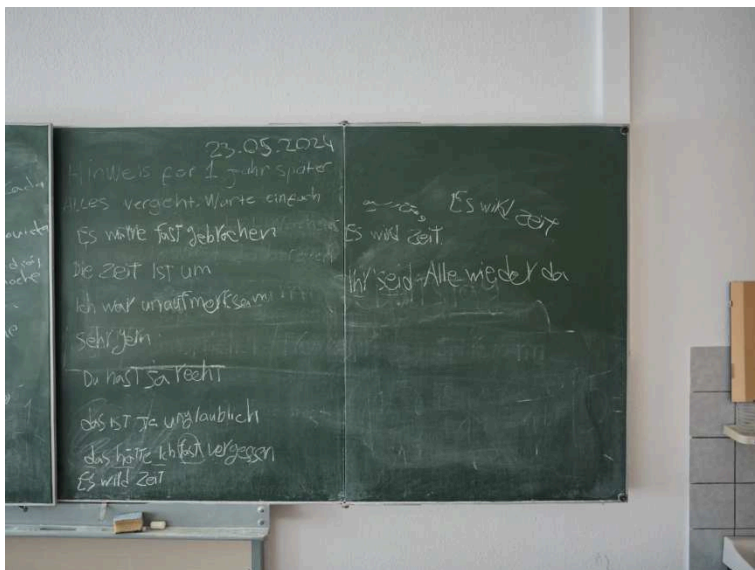 23.05.2024
Hinweis for 1 Jahr später
Alles vergeht. Warte einfach
Es wäre fast gebrochen
Die Zeit Ist um
Ich war unaufmerksam
Sehr gern
Du hast ja recht
das ist ja unglaublich
das hätte Ich fast vergessen
Es wird Zeit
Es wird Zeit
Es wird Zeit.
Ihr seid Alle wieder da